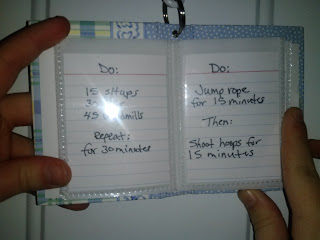 Do:
15 situps
45
Repeat:
for 30 minutes
Do:
Jump rope
for 15 minutes
Then:
Shoot hoops for
15 minutes